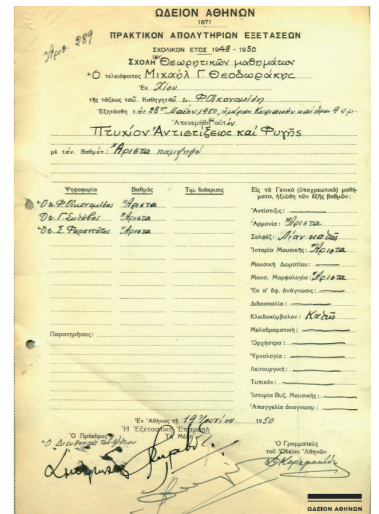 ΩΔΕΙΟΝ ΑΘΗΝΩΝ
1871
Ἀριθ. 289
ΠΡΑΚΤΙΚΟΝ ΑΠΟΛΥΤΗΡΙΩΝ ΕΞΕΤΑΣΕΩΝ
ΣΧΟΛΙΚΟΝ ΕΤΟΣ 1949 - 1950
ΣΧΟΛΗ Θεωρητικῶν μαθημάτων
Ὁ τελειόφοιτος Μιχαὴλ Γ. Θεοδωράκης
Ἐκ Χίου
τῆς τάξεως τοῦ Καθηγητοῦ κ. Φ. Οἰκονομίδη
Ἐξητάσθη τῇ 28ῃ Μαΐου 1950, ἡμέραν Κυριακὴν καὶ ὥραν 9 π.μ.
Ἀπενεμήθη αὐτῷ
Πτυχίον Ἀντιστίξεως καὶ Φυγῆς
μὲ τὸν Βαθμὸν: Ἄριστα παμψηφεί
Ψηφοφορία Βαθμὸς Τιμ. διάκρισις
Ὁ κ. Φ. Οἰκονομίδης Ἄριστα
Ὁ κ. Γ. Σκλάβος Ἄριστα
Ὁ κ. Σ. Φαραντάτος Ἄριστα
Παρατηρήσεις:
Εἰς τὰ Γενικὰ (ὑποχρεωτικὰ) μαθή-
ματα, ἠξιώθη τῶν ἑξῆς βαθμῶν:
Ἀντίστιξις:
Ἁρμονία: Ἄριστα
Σολφὲζ: Λίαν καλῶς
Ἱστορία Μουσικῆς: Ἄριστα
Μουσικὴ Δωματίου:
Μουσ. Μορφολογία: Ἄριστα
Ἐκ α' ὄψ. ἀνάγνωσις:
Διδασκαλία:
Κλειδοκύμβαλον: Καλῶς
Μελοδραματική:
Ὀρχήστρα:
Ὑμνολογία:
Λειτουργική:
Τυπικόν:
Ἱστορία Βυζ. Μουσικῆς:
Ἀπαγγελία ἀναγνωσμ.:
Ἐν Ἀθήναις τῇ 19 Ἰουνίου 1950
Ἡ Ἐξεταστικὴ Ἐπιτροπὴ
Ὁ Πρόεδρος
Τὰ Μέλη
Ὁ Γραμματεὺς
τοῦ Ὠδείου Ἀθηνῶν
ΩΔΕΙΟΝ ΑΘΗΝΩΝ